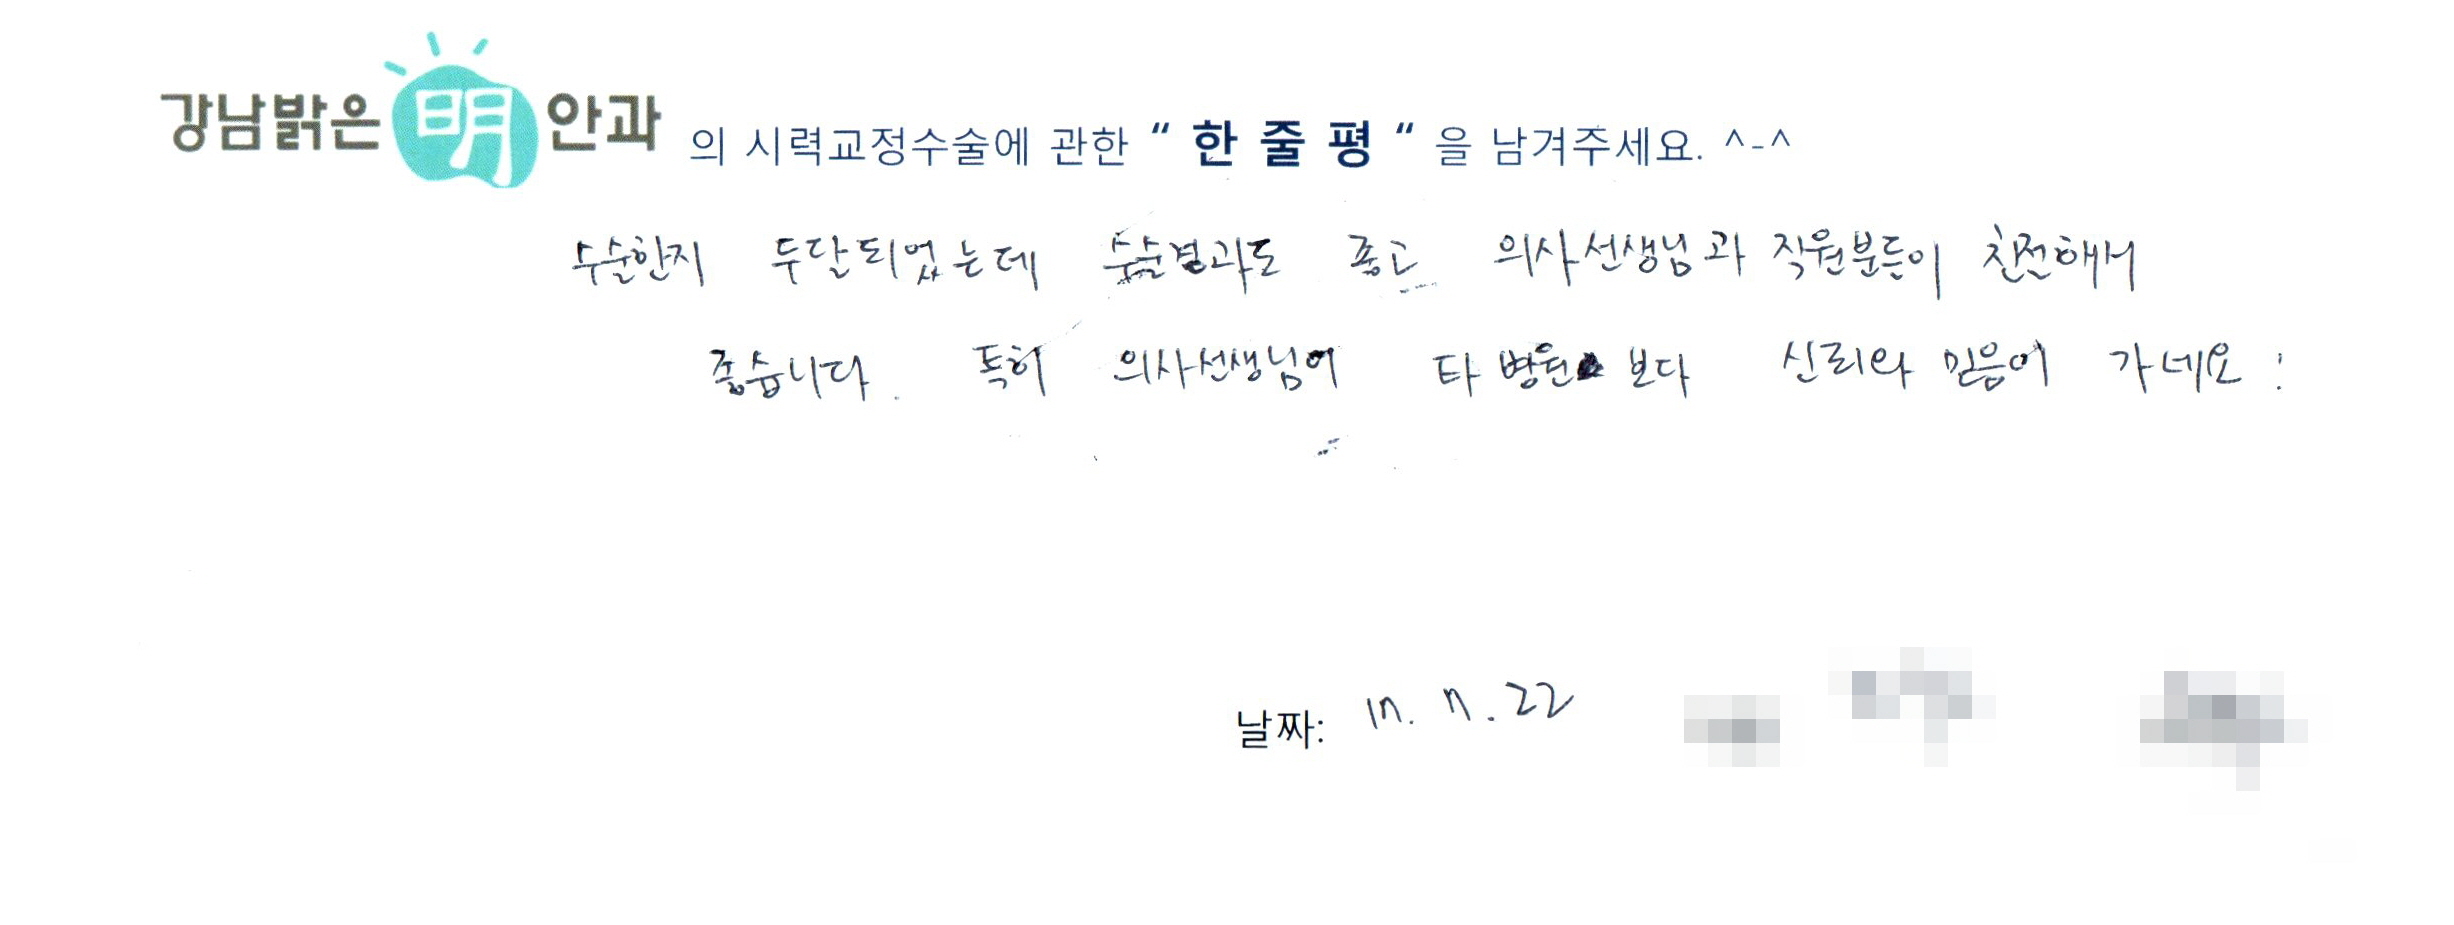 강남밝은明안과 의 시력교정수술에 관한 “ 한 줄 평 “ 을 남겨주세요. ^-^
수술한지 두달되었는데 수술결과도 좋고 의사선생님과 직원분들이 친전해서
좋습니다. 특히 의사선생님이 타 병원보다 신뢰와 믿음이 가네요!
날짜: 17. 7. 22